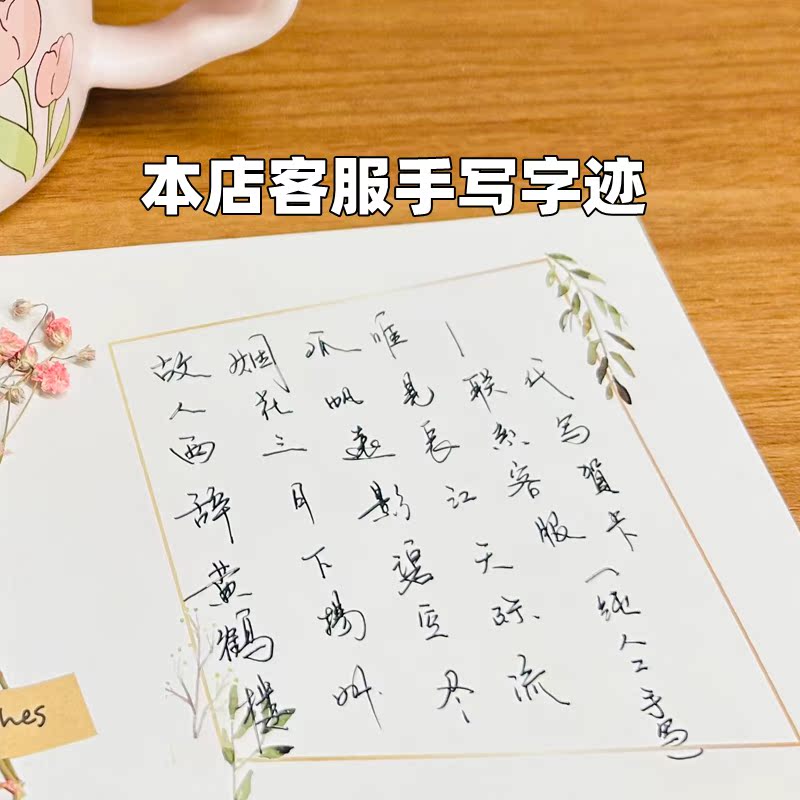 本店客服手写字迹
故人西辞黄鶴楼
烟花三月下揚州
孤帆遠影碧空尽
唯見長江天际流
—联系客服
代写賀卡（纯人工手写）
hes